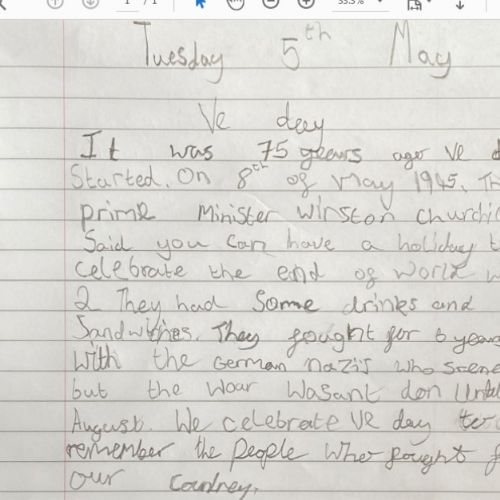 1 / 1 33.3%
Tuesday 5th May
Ve day
It was 75 years ago Ve d
Started. On 8th of May 1945. Th
prime Minister Winston Churchi
Said you can have a holiday t
celebrate the end of World w
2 They had Some drinks and
Sandwiches. They fought for 6 years
With the German nazis who
but the Woar Wasant don
August. We celebrate VE day
remember the People Who fought f
our Coudney.